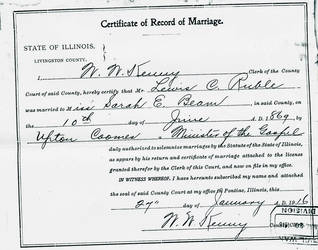 Certificate of Record of Marriage.
STATE OF ILLINOIS,
LIVINGSTON COUNTY.
I, W. W. Kenny Clerk of the County
Court of said County, hereby certify that Mr. Lewis C. Ruble
was married to Miss Sarah E. Beam in said County, on
the 10th day of June A. D. 1869, by
Upton Coomes a Minister of the Gospel
duly authorized to solemnize marriages by the Statute of the State of Illinois,
as appears by his return and certificate of marriage attached to the license
granted therefor by the Clerk of this Court, and now on file in my office.
IN WITNESS WHEREOF, I have hereunto subscribed my name and attached
the seal of said County Court at my office in Pontiac, Illinois, this
27th day of January A. D. 1916
W. W. Kenny
DIVISION